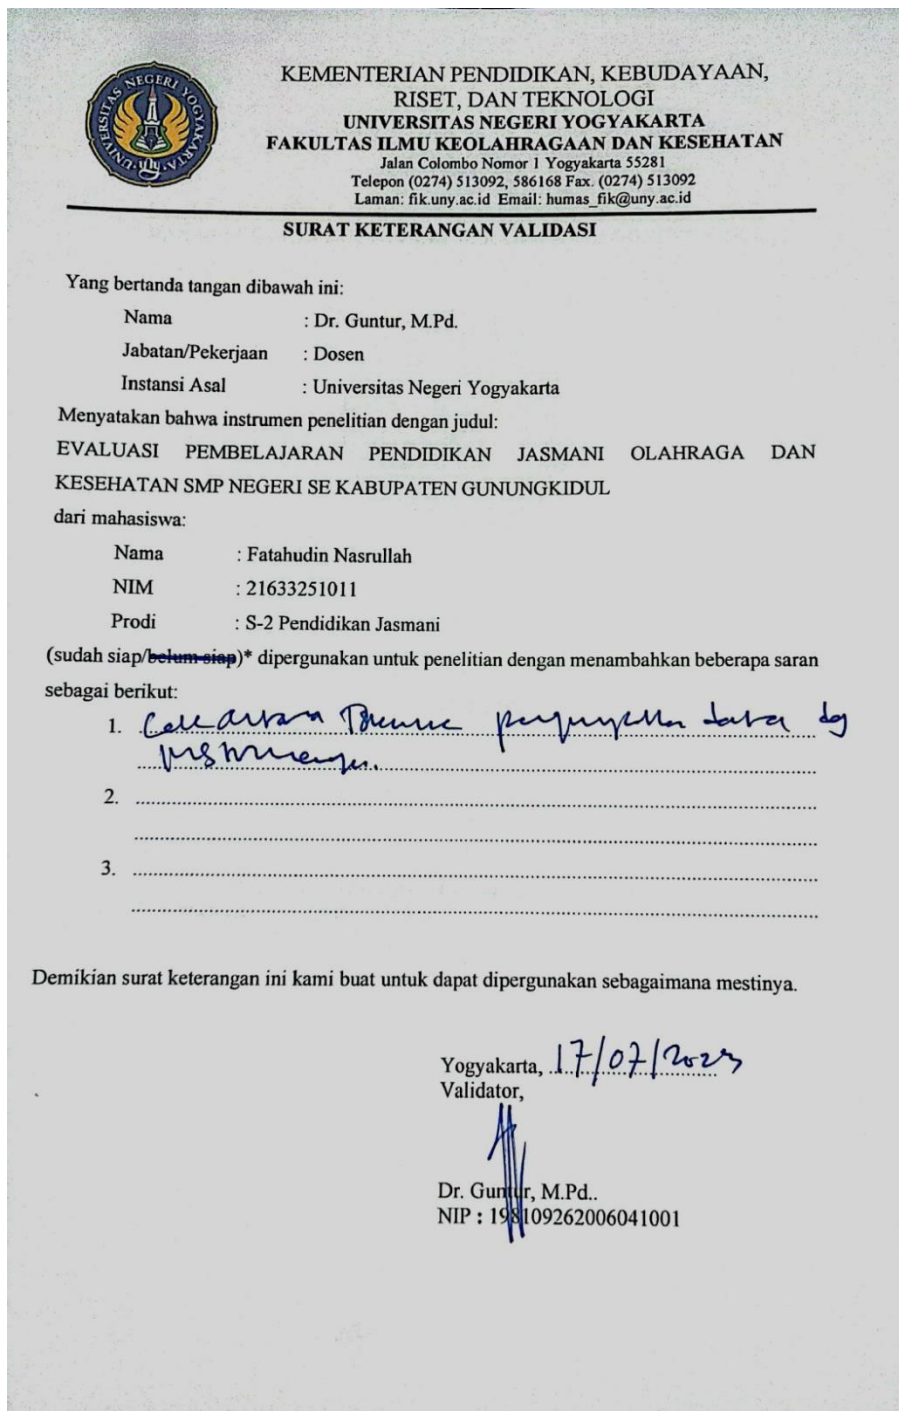 UNIVERSITAS NEGERI YOGYAKARTA
uny
KEMENTERIAN PENDIDIKAN, KEBUDAYAAN,
RISET, DAN TEKNOLOGI
UNIVERSITAS NEGERI YOGYAKARTA
FAKULTAS ILMU KEOLAHRAGAAN DAN KESEHATAN
Jalan Colombo Nomor 1 Yogyakarta 55281
Telepon (0274) 513092, 586168 Fax. (0274) 513092
Laman: fik.uny.ac.id Email: humas_fik@uny.ac.id
SURAT KETERANGAN VALIDASI
Yang bertanda tangan dibawah ini:
Nama : Dr. Guntur, M.Pd.
Jabatan/Pekerjaan : Dosen
Instansi Asal : Universitas Negeri Yogyakarta
Menyatakan bahwa instrumen penelitian dengan judul:
EVALUASI PEMBELAJARAN PENDIDIKAN JASMANI OLAHRAGA DAN
KESEHATAN SMP NEGERI SE KABUPATEN GUNUNGKIDUL
dari mahasiswa:
Nama : Fatahudin Nasrullah
NIM : 21633251011
Prodi : S-2 Pendidikan Jasmani
(sudah siap/belum siap)* dipergunakan untuk penelitian dengan menambahkan beberapa saran
sebagai berikut:
1. data dg
2.
3.
Demikian surat keterangan ini kami buat untuk dapat dipergunakan sebagaimana mestinya.
Yogyakarta, 17/07/2023
Validator,
Dr. Guntur, M.Pd..
NIP : 198109262006041001